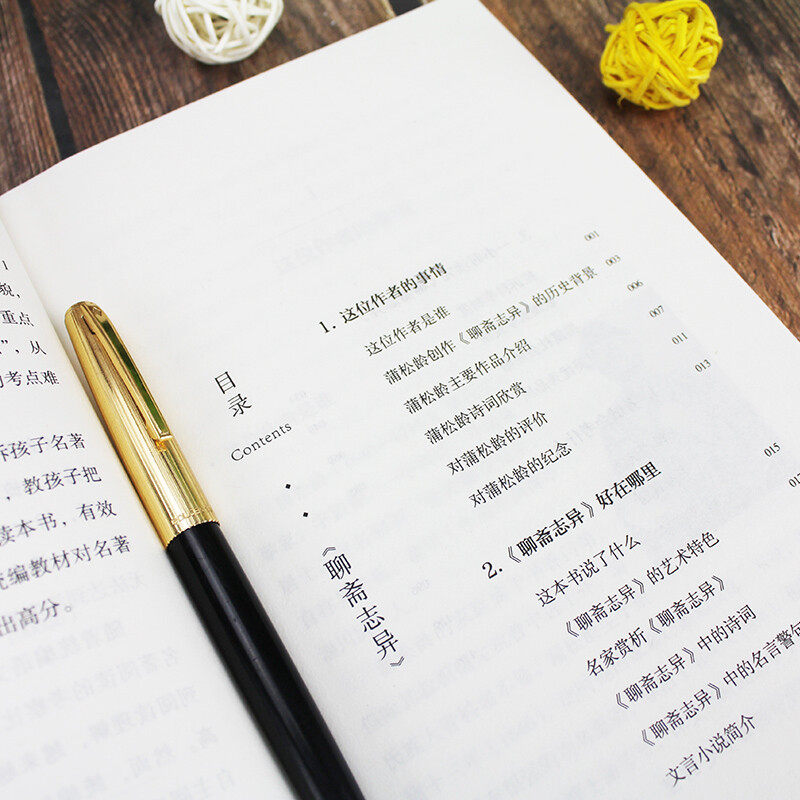 重点
”，从
考点难
诉孩子名著
，教孩子把
读本书，有效
统编教材对名著
出高分。
目录
Contents
《聊斋志异》
1. 这位作者的事情
这位作者是谁 001
蒲松龄创作《聊斋志异》的历史背景 003
蒲松龄主要作品介绍 006
蒲松龄诗词欣赏 007
对蒲松龄的评价 011
对蒲松龄的纪念 013
2.《聊斋志异》好在哪里
这本书说了什么 015
《聊斋志异》的艺术特色
名家赏析《聊斋志异》
《聊斋志异》中的诗词
《聊斋志异》中的名言警句
文言小说简介